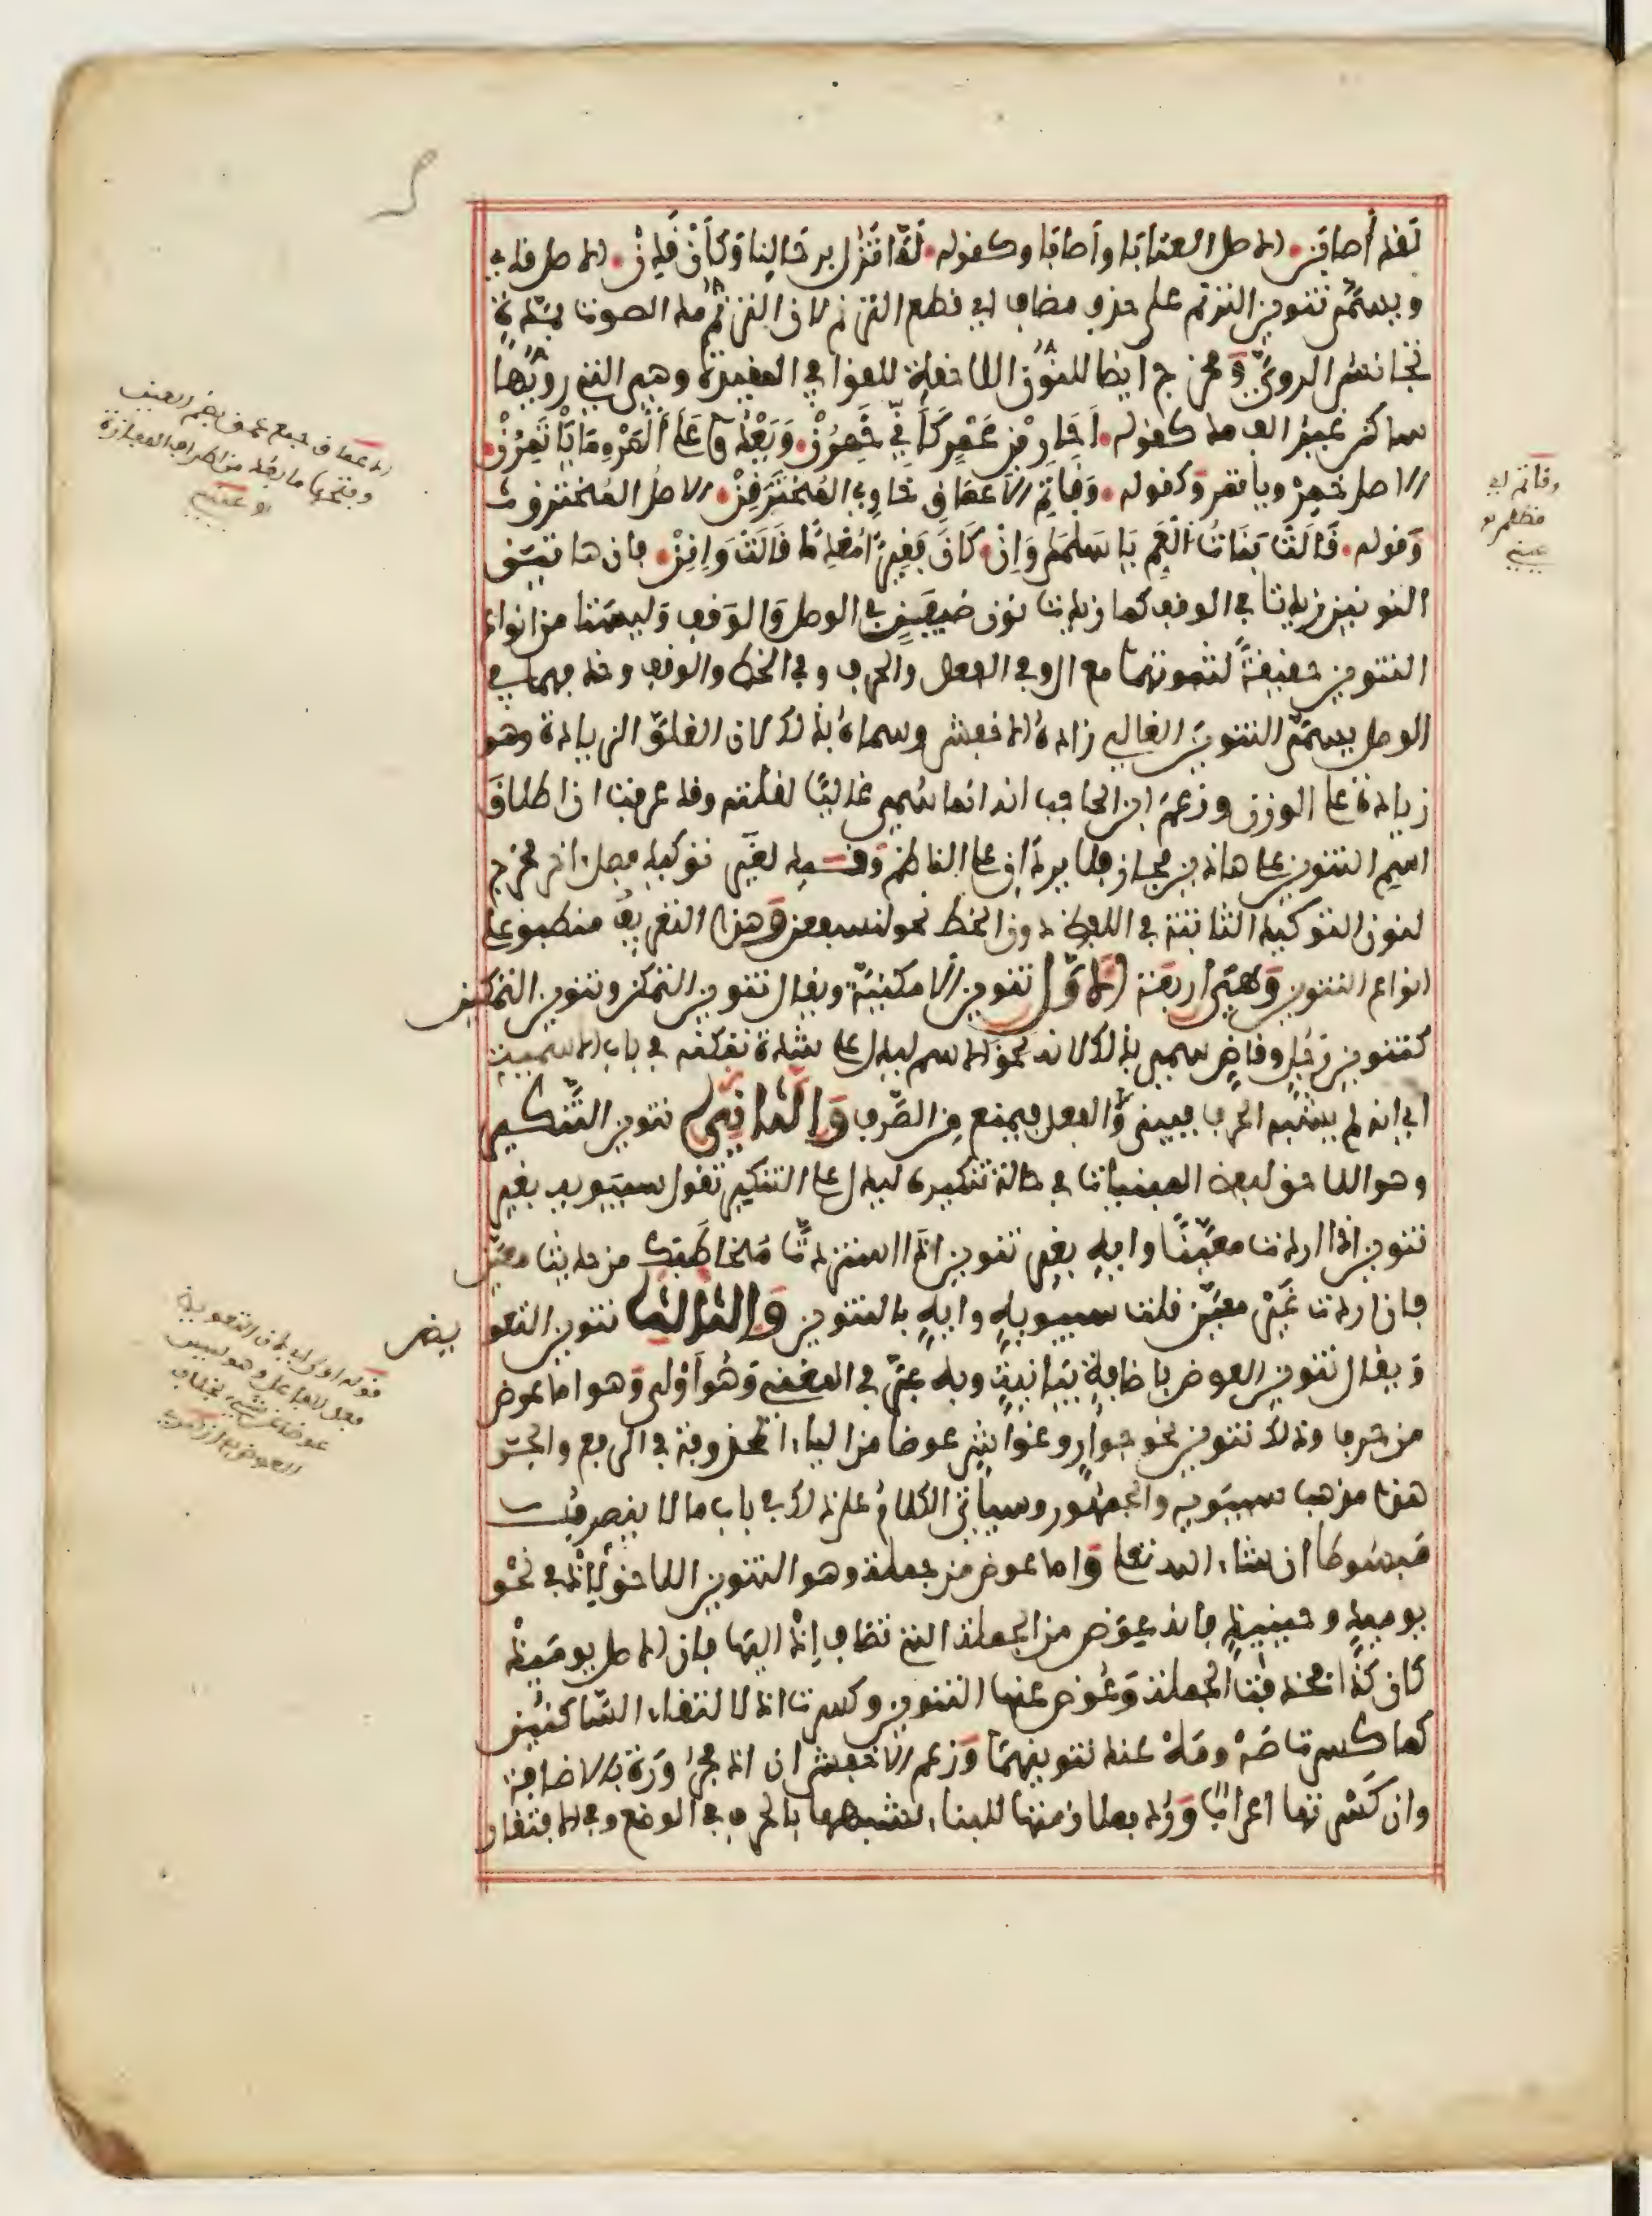 لقد أصابن الاصل العتابا وأصابا وكقوله لما تزل برحالنا وكأن قدن الاصل قدي
ويسمى تنوين الترنم على حذف مضاف اي قطع الترنم لان الترنم مد الصوت بمدة
تجانس الروي ومخرج ايضا للنون اللاحقة للقوافي المقيدة وهي التي رويها
ساكن غير الف مد كقوله أحار بن عمرو كأني خمرن ويعدو على المرء ما يأتمرن
الاصل خمر ويأتمر وكقوله وقاتم الاعماق خاوي المخترقن الاصل المخترق
وقوله قالت بنات العم يا سلمى وإنن كان فقيرا معدما قالت وإنن فان هاتين
النونين زيدتا في الوقف كما زيدت نون ضيفن في الوصل والوقف وليستا من انواع
التنوين حقيقة لثبوتهما مع ال وفي الفعل والحرف وفي الخط والوقف وحذفهما في
الوصل يسمى التنوين الغالي زاده الاخفش وسماه بذلك لان الغلو الزيادة وهو
زيادة على الوزن وزعم ابن الحاجب انه انما سمي غاليا لقلته وقد عرفت ان اطلاق
اسم التنوين على هاذين مجاز فلا يردان على الناظم وقيد لغير توكيد فصل اخر مخرج
لنون التوكيد الثابتة في اللفظ دون الخط نحو لنسفعن وهذا التعريف منطبق على
انواع التنوين وهي أربعة الاول تنوين الامكنية ويقال تنوين التمكن وتنوين التمكين
كتنوين رجل وقاض سمي بذلك لانه لحق الاسم ليدل على شدة تمكنه في باب الاسمية
اي انه لم يشبه الحرف فيبنى ولا الفعل فيمنع من الصرف والثاني تنوين التنكير
وهو اللاحق لبعض المبنيات في حالة تنكيره ليدل على التنكير تقول سيبويه بغير
تنوين اذا اردت معينا وايه بغير تنوين اذا استزدت مخاطبك من حديث معين
فان اردت غير معين قلت سيبويه وايه بالتنوين والثالث تنوين التعو يض
ويقال تنوين العوض باضافة بيانية وبه عبر في المغني وهو أولى وهو اما عوض
من حرف وذلك تنوين نحو جوار وغواش عوضا من الياء المحذوفة في الرفع والجر
هذا مذهب سيبويه والجمهور وسيأتي الكلام على ذلك في باب ما لا ينصرف
مبسوطا ان شاء الله تعلى واما عوض من جملة وهو التنوين اللاحق لإذ في نحو
يومئذ وحينئذ فانه عوض من الجملة التي تضاف إذ اليها فان الاصل يوم إذ
كان كذا فحذفت الجملة وعوض عنها التنوين وكسرت اذ لالتقاء الساكنين
كما كسرت صه ومه عند تنوينهما وزعم الاخفش ان اذ مجرورة بالاضافة
وان كسرتها اعراب ورد بملازمتها للبناء لشبهها بالحرف في الوضع وفي الافتقار
الاعماق جمع عمق بضم العين
وفتحها ما بعد من اطراف المفازة
وقاتم اي
عيني
قوله اولى اي لان التعويض
فعل الفاعل وهو ليس
عوضا عن شيء بخلاف